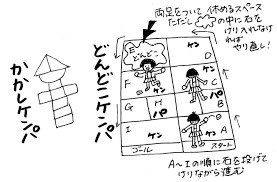 両足をついて休めるスペース
ただし の中に石を
けり入れなけ
れば
やり直し!
かかしケンパ
どんどこケンパ
どんどこ
ケン
ケン
D
F
ケン
パ
C
G
H
パ
ケン
B
I
ケン
ケン
A
ゴール
スタート
A~Iの順に石を投げて
けりながら進む